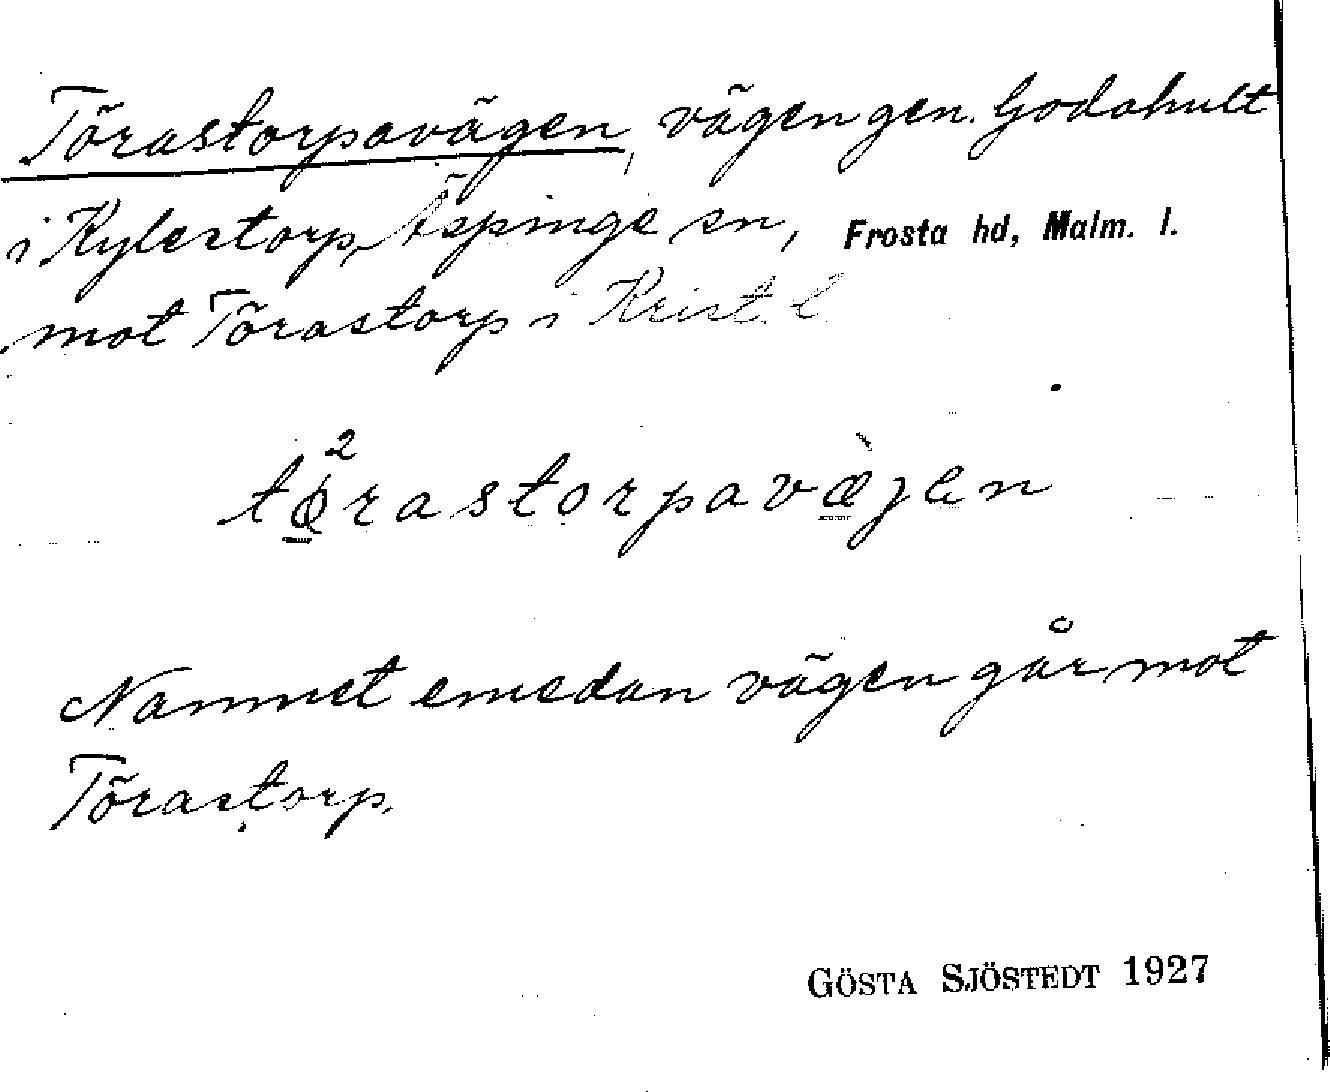 Törastorpavägen, vägen gen. Godahult
i Kylestorp, Äspinge sn, Frosta hd, Malm. l.
mot Törastorp i Krist. l.
tø²rastorpavæ̀jen
Namnet emedan vägen går mot
Törastorp.
GÖSTA SJÖSTEDT 1927